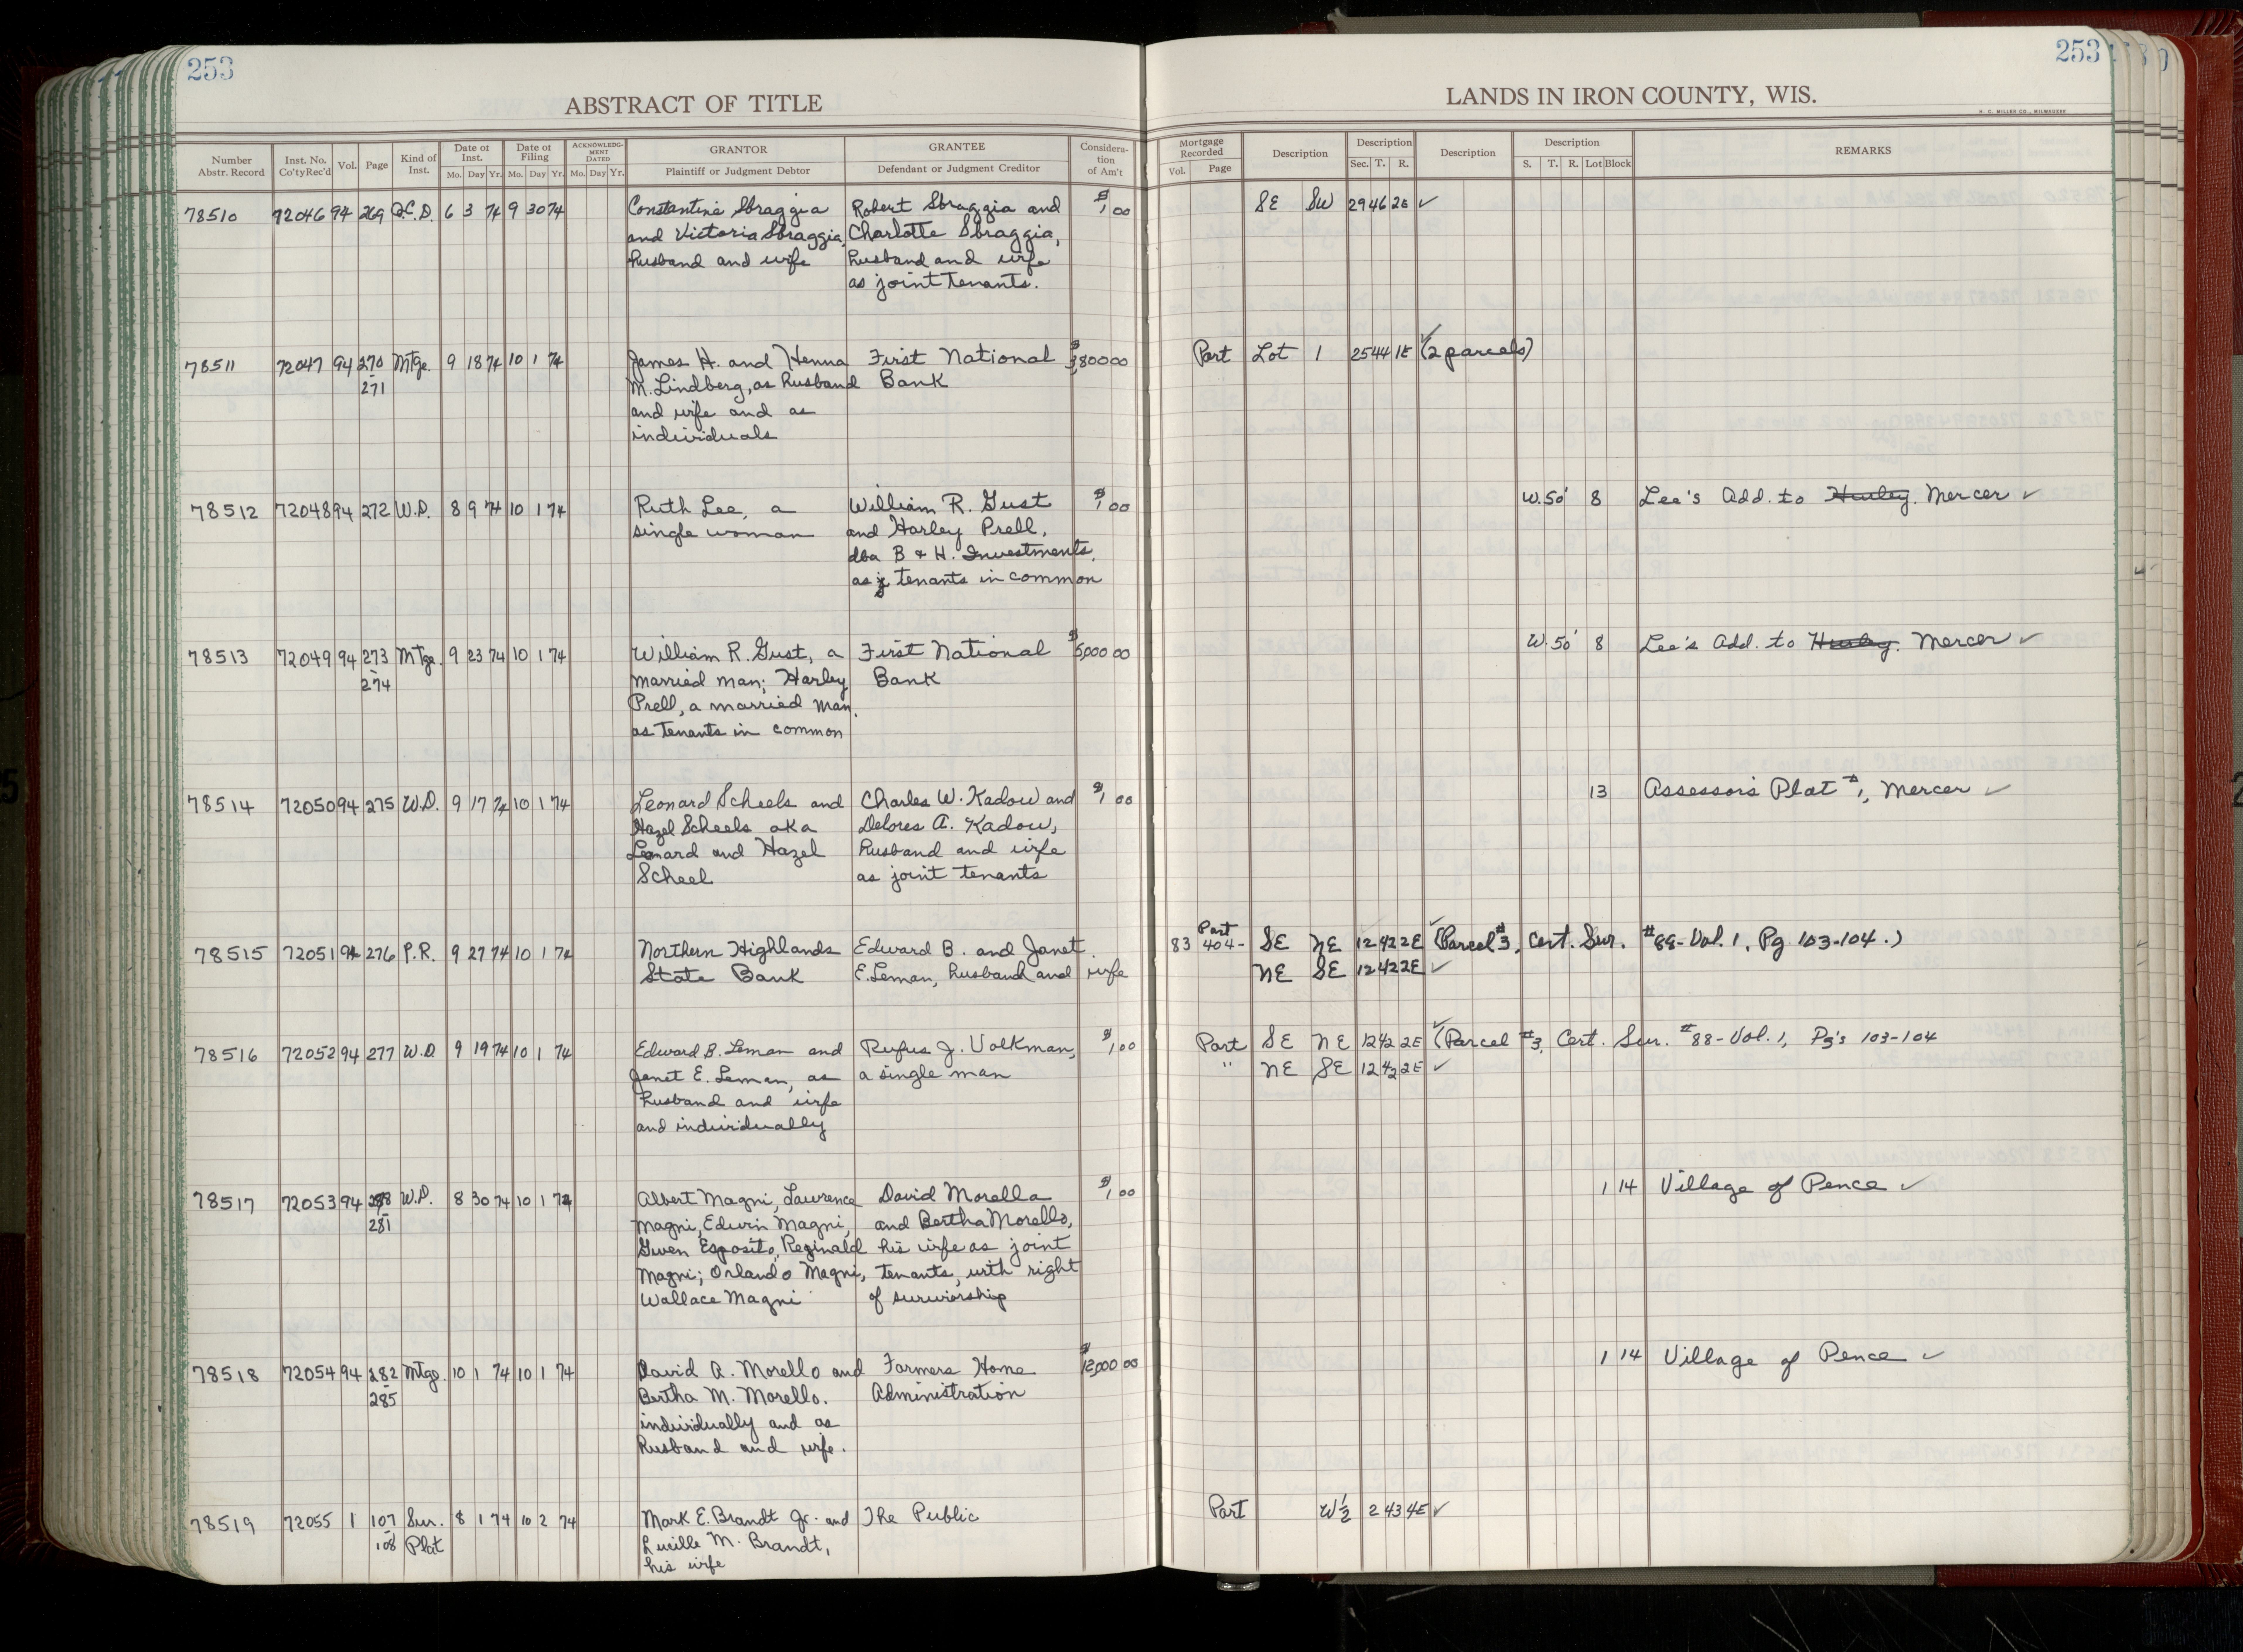 253
253
ABSTRACT OF TITLE
LANDS IN IRON COUNTY, WIS.
H. C. MILLER CO., MILWAUKEE
Number Abstr. Record | Inst. No. Co'ty Rec'd | Vol. | Page | Kind of Inst. | Date of Inst. Mo. Day Yr. | Date of Filing Mo. Day Yr. | ACKNOWLEDGMENT DATED Mo. Day Yr. | GRANTOR Plaintiff or Judgment Debtor | GRANTEE Defendant or Judgment Creditor | Consideration of Am't | Mortgage Recorded Vol. Page | Description | Description Sec. T. R. | Description | Description S. T. R. Lot Block | REMARKS
78510 72046 94 269 Q.C.D. 6 3 74 9 30 74 Constantine Sbraggia Robert Sbraggia and $1 00 SE SW 29 46 2E ✓
and Victoria Sbraggia, Charlotte Sbraggia,
husband and wife husband and wife
as joint tenants.
78511 72047 94 270 Mtge. 9 18 74 10 1 74 James H. and Henna First National $3,800 00 Part Lot 1 25 44 1E ✓ (2 parcels)
271 M. Lindberg, as husband Bank
and wife and as
individuals
78512 72048 94 272 W.D. 8 9 74 10 1 74 Ruth Lee, a William R. Gust $1 00 W. 50' 8 Lee's Add. to Hurley. Mercer ✓
single woman and Harley Prell,
dba B & H. Investments,
as j tenants in common
78513 72049 94 273 Mtge. 9 23 74 10 1 74 William R. Gust, a First National $5,000 00 W. 50' 8 Lee's Add. to Hurley. Mercer ✓
274 married man; Harley Bank
Prell, a married man,
as tenants in common
78514 72050 94 275 W.D. 9 17 74 10 1 74 Leonard Scheels and Charles W. Kadow and $1 00 13 Assessor's Plat #1, Mercer ✓
Hazel Scheels aka Delores A. Kadow,
Leonard and Hazel husband and wife
Scheel as joint tenants
78515 72051 94 276 P.R. 9 27 74 10 1 74 Northern Highlands Edward B. and Janet 83 404- Part SE NE 12 42 2E ✓ (Parcel #3, Cert. Sur. #88-Vol. 1, Pg. 103-104.)
State Bank E. Leman, husband and wife NE SE 12 42 2E ✓
78516 72052 94 277 W.D. 9 19 74 10 1 74 Edward B. Leman and Rufus J. Volkman, $1 00 Part SE NE 12 42 2E ✓ (Parcel #3, Cert. Sur. #88-Vol. 1, Pg's 103-104
Janet E. Leman, as a single man " NE SE 12 42 2E ✓
husband and wife
and individually
78517 72053 94 278 W.D. 8 30 74 10 1 74 Albert Magni, Lawrence David Morella $1 00 1 14 Village of Pence ✓
281 Magni, Edwin Magni, and Bertha Morello,
Gwen Esposito, Reginald his wife as joint
Magni; Orlando Magni, tenants, with right
Wallace Magni of surviorship
78518 72054 94 282 Mtge. 10 1 74 10 1 74 David A. Morello and Farmers Home $12,000 00 1 14 Village of Pence ✓
285 Bertha M. Morello. Administration
individually and as
husband and wife.
78519 72055 1 107 Sur. 8 1 74 10 2 74 Mark E. Brandt Jr. and The Public Part W½ 2 43 4E ✓
108 Plat Lucille M. Brandt,
his wife